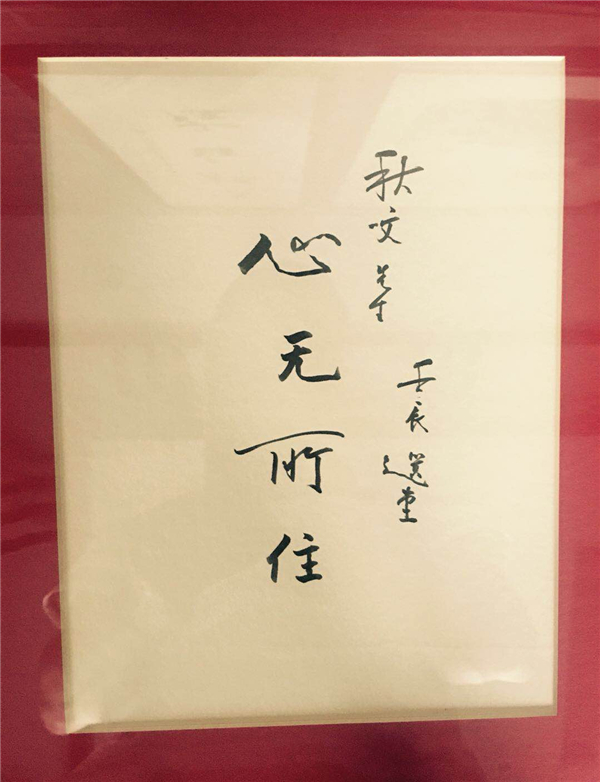 心无所住
秋呅先生
壬辰選堂